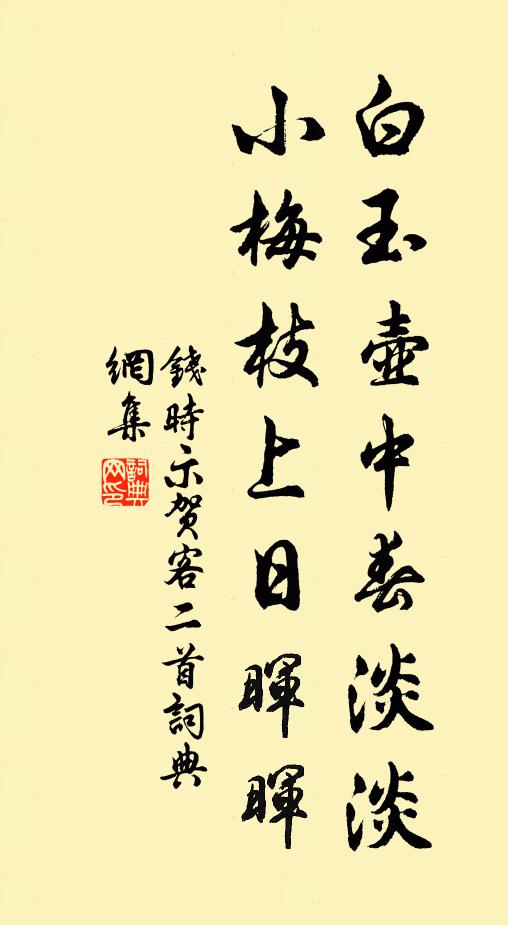 白玉壺中春淡淡
小梅枝上日暉暉
錢時示賀客二首詞典
網集
詞典
网印